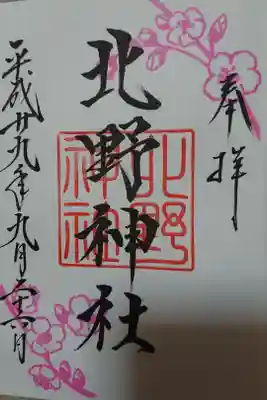 奉拝
北野神社
北野
神社
平成廿九年九月二十六日